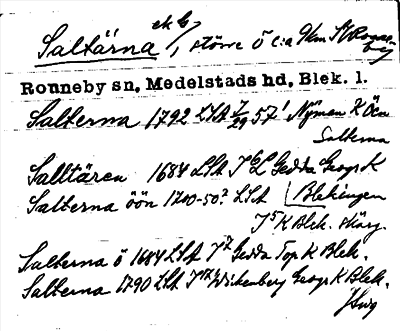 ek G
Saltärna /, större Ö c:a 9 km SV Ronneby
Ronneby sn, Medelstads hd, Blek. l.
Salterna 1792 LSA 57 Nyman K Öen
Salterna
Salltären 1684 LSA Gedda Geogr K
Salterna öön 1700-50? LSA Blekingen
K Blek. skärg.
Salterna ö 1684 LSA Gedda Top K Blek.
Salterna 1790 LSA Wickenberg Geogr K Blek.